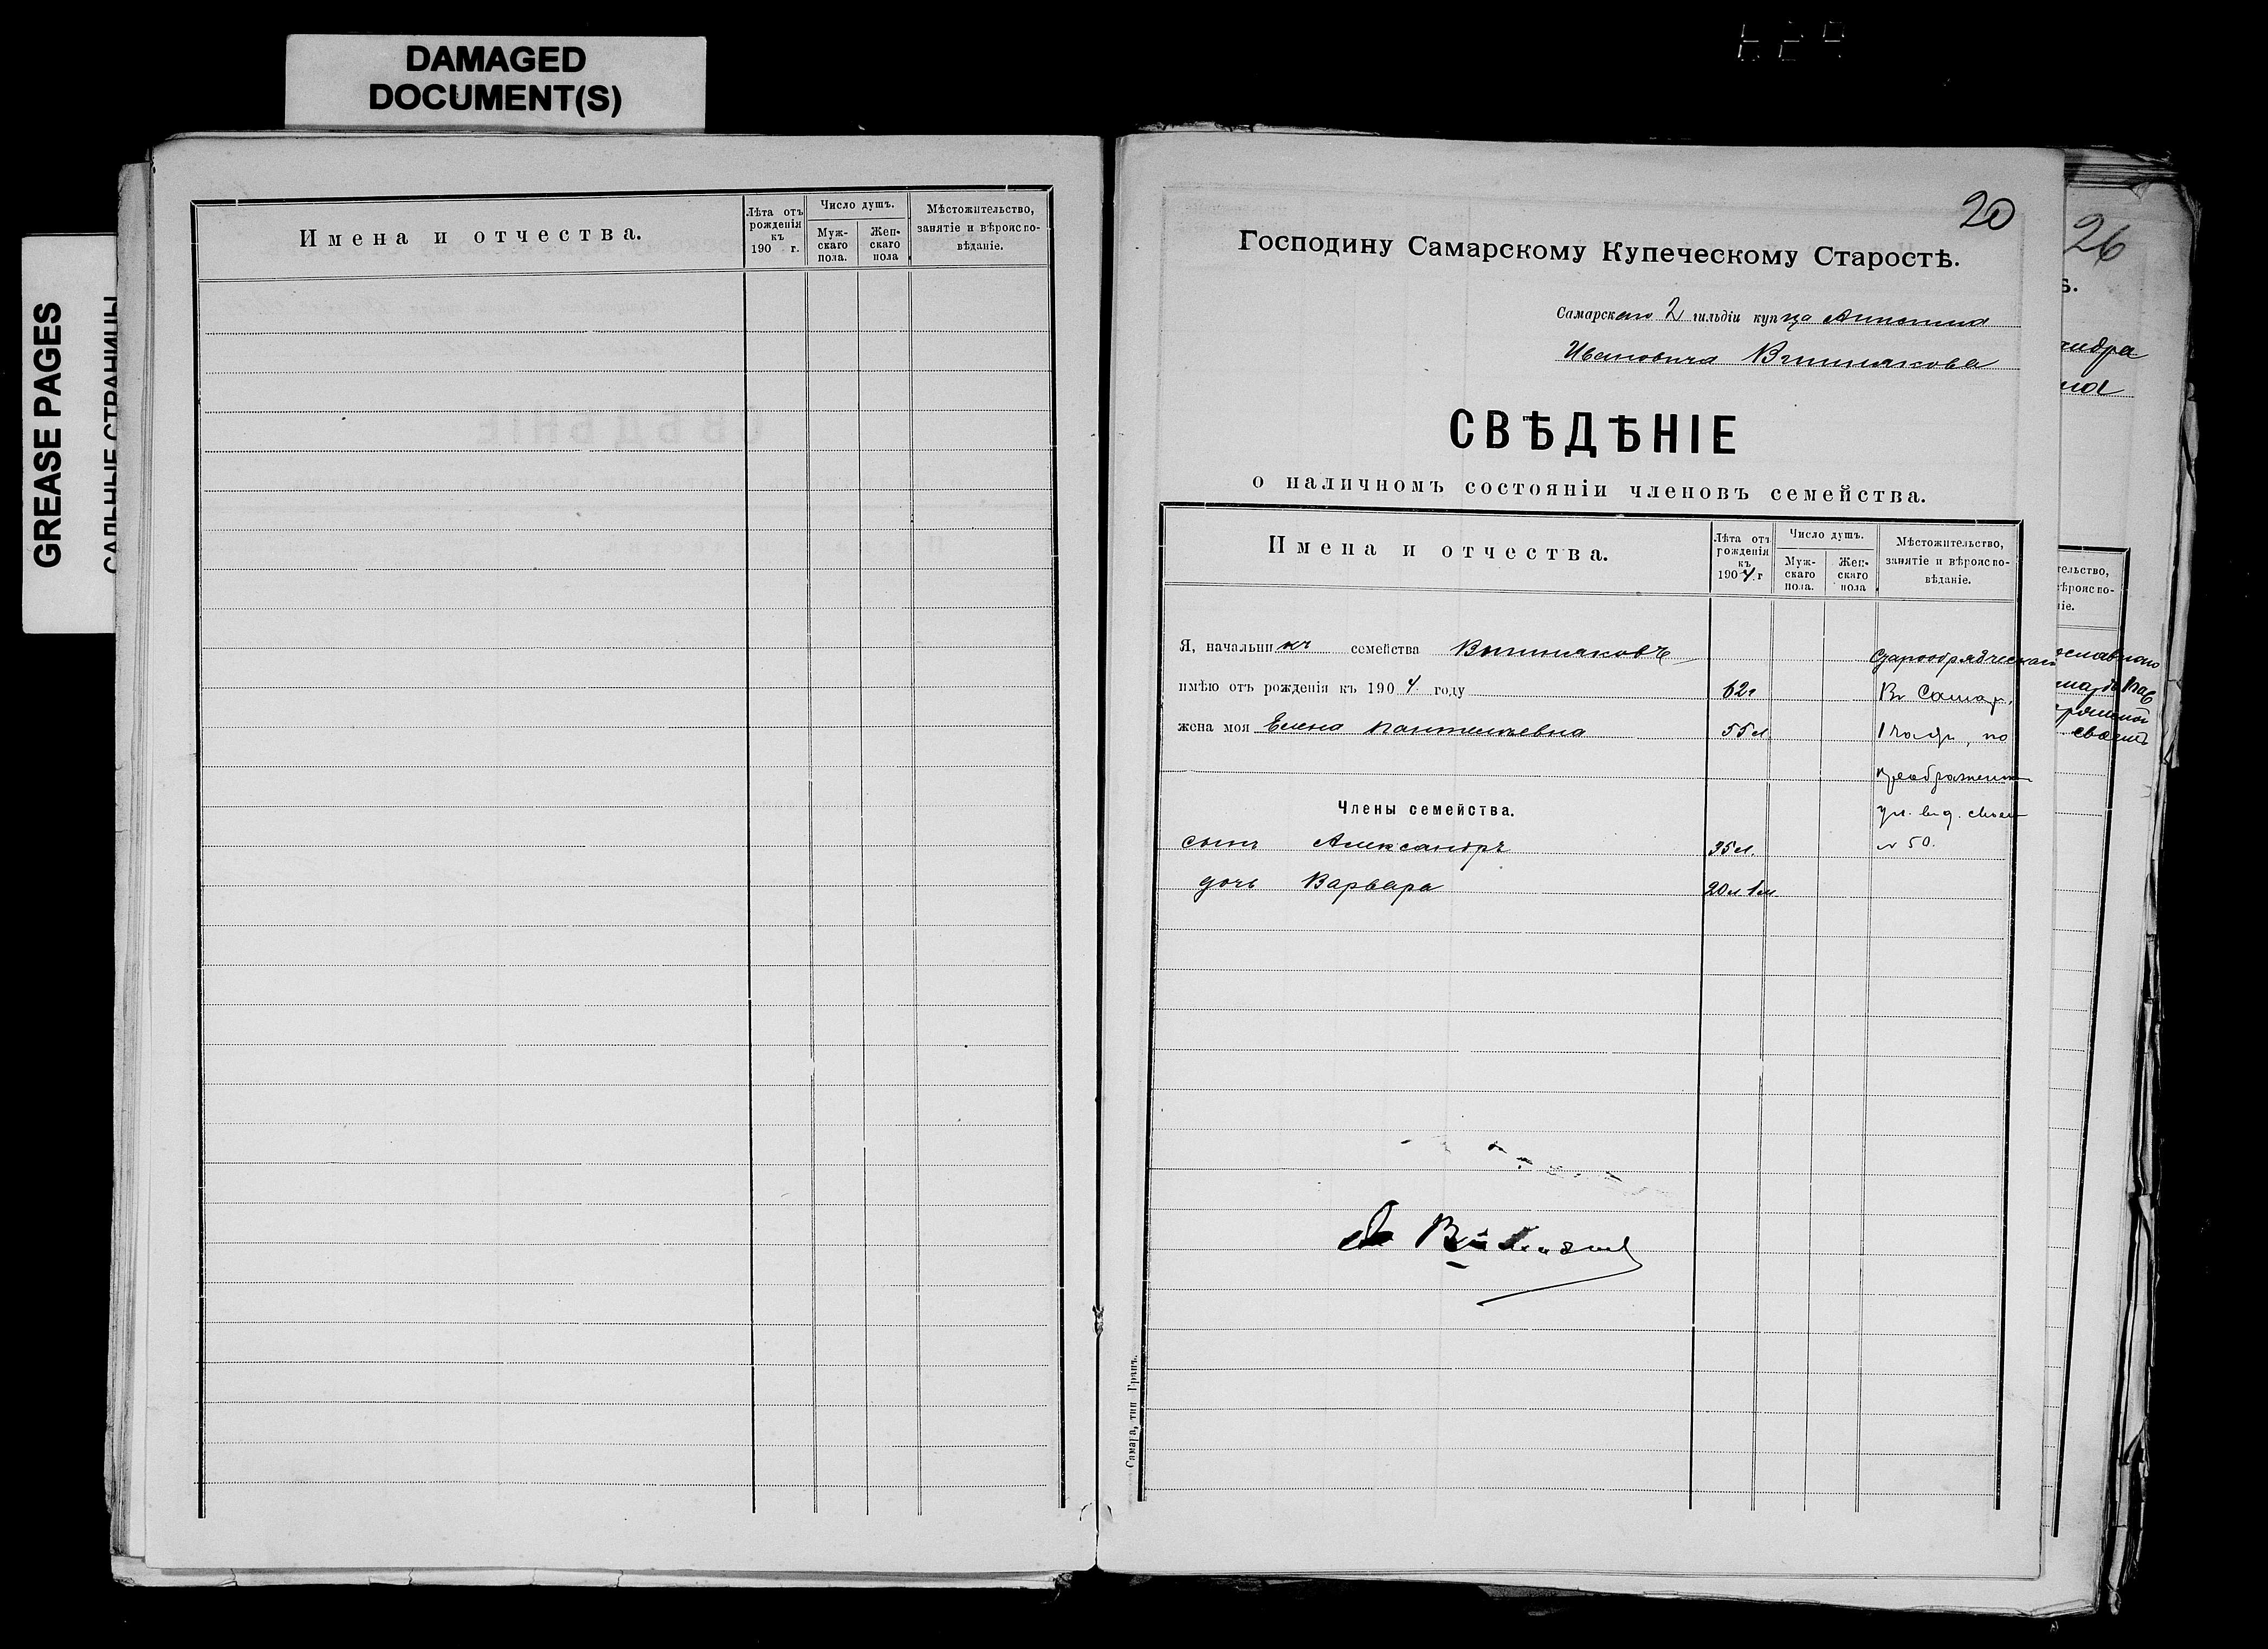 DAMAGED
DOCUMENT(S)
GREASE PAGES
САЛЬНЫЕ СТРАНИЦЫ
Имена и отчества.
Лѣта отъ рожденія къ 190 г.
Число душъ.
Мужскаго пола.
Женскаго пола
Мѣстожительство, занятіе и вѣроисповѣданіе.
20
Господину Самарскому Купеческому Старостѣ.
Самарскаго 2 гильдіи купца Антонина
Ивановича Вишнякова
СВѢДѢНІЕ
о наличномъ состояніи членовъ семейства.
Имена и отчества.
Лѣта отъ рожденія къ 1904 г
Число душъ.
Мужскаго пола.
Женскаго пола
Мѣстожительство, занятіе и вѣроисповѣданіе.
Я, начальникъ семейства Вишняковъ
Старообрядческаго
имѣю отъ рожденія къ 1904 году 62г В Самар.
жена моя Елена Пантелѣевна 55 л 1 части, по
Преображенск
Члены семейства.
ул. в д. своем
сынъ Александръ 35 л. № 50.
дочь Варвара 20 л 1 м
Самара, тип Гранъ.
26